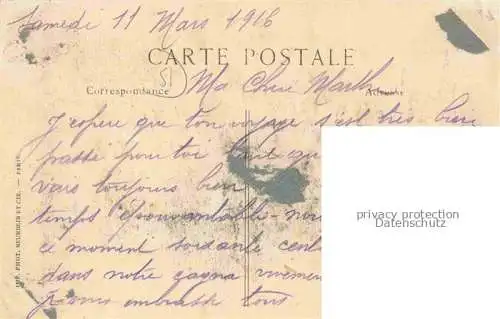 Samedi 11 Mars 1916
CARTE POSTALE
Correspondance
Adresse
51
Ma Chère
J'espère que ton voyage s'est très bien
passé pour toi
vais toujours bien
temps épouvantable - nou
ce moment soixante cent
dans notre cagna vivement
vous embrasse tous
IMP. PHOT. NEURDEIN ET CIE. — PARIS
privacy protection
Datenschutz